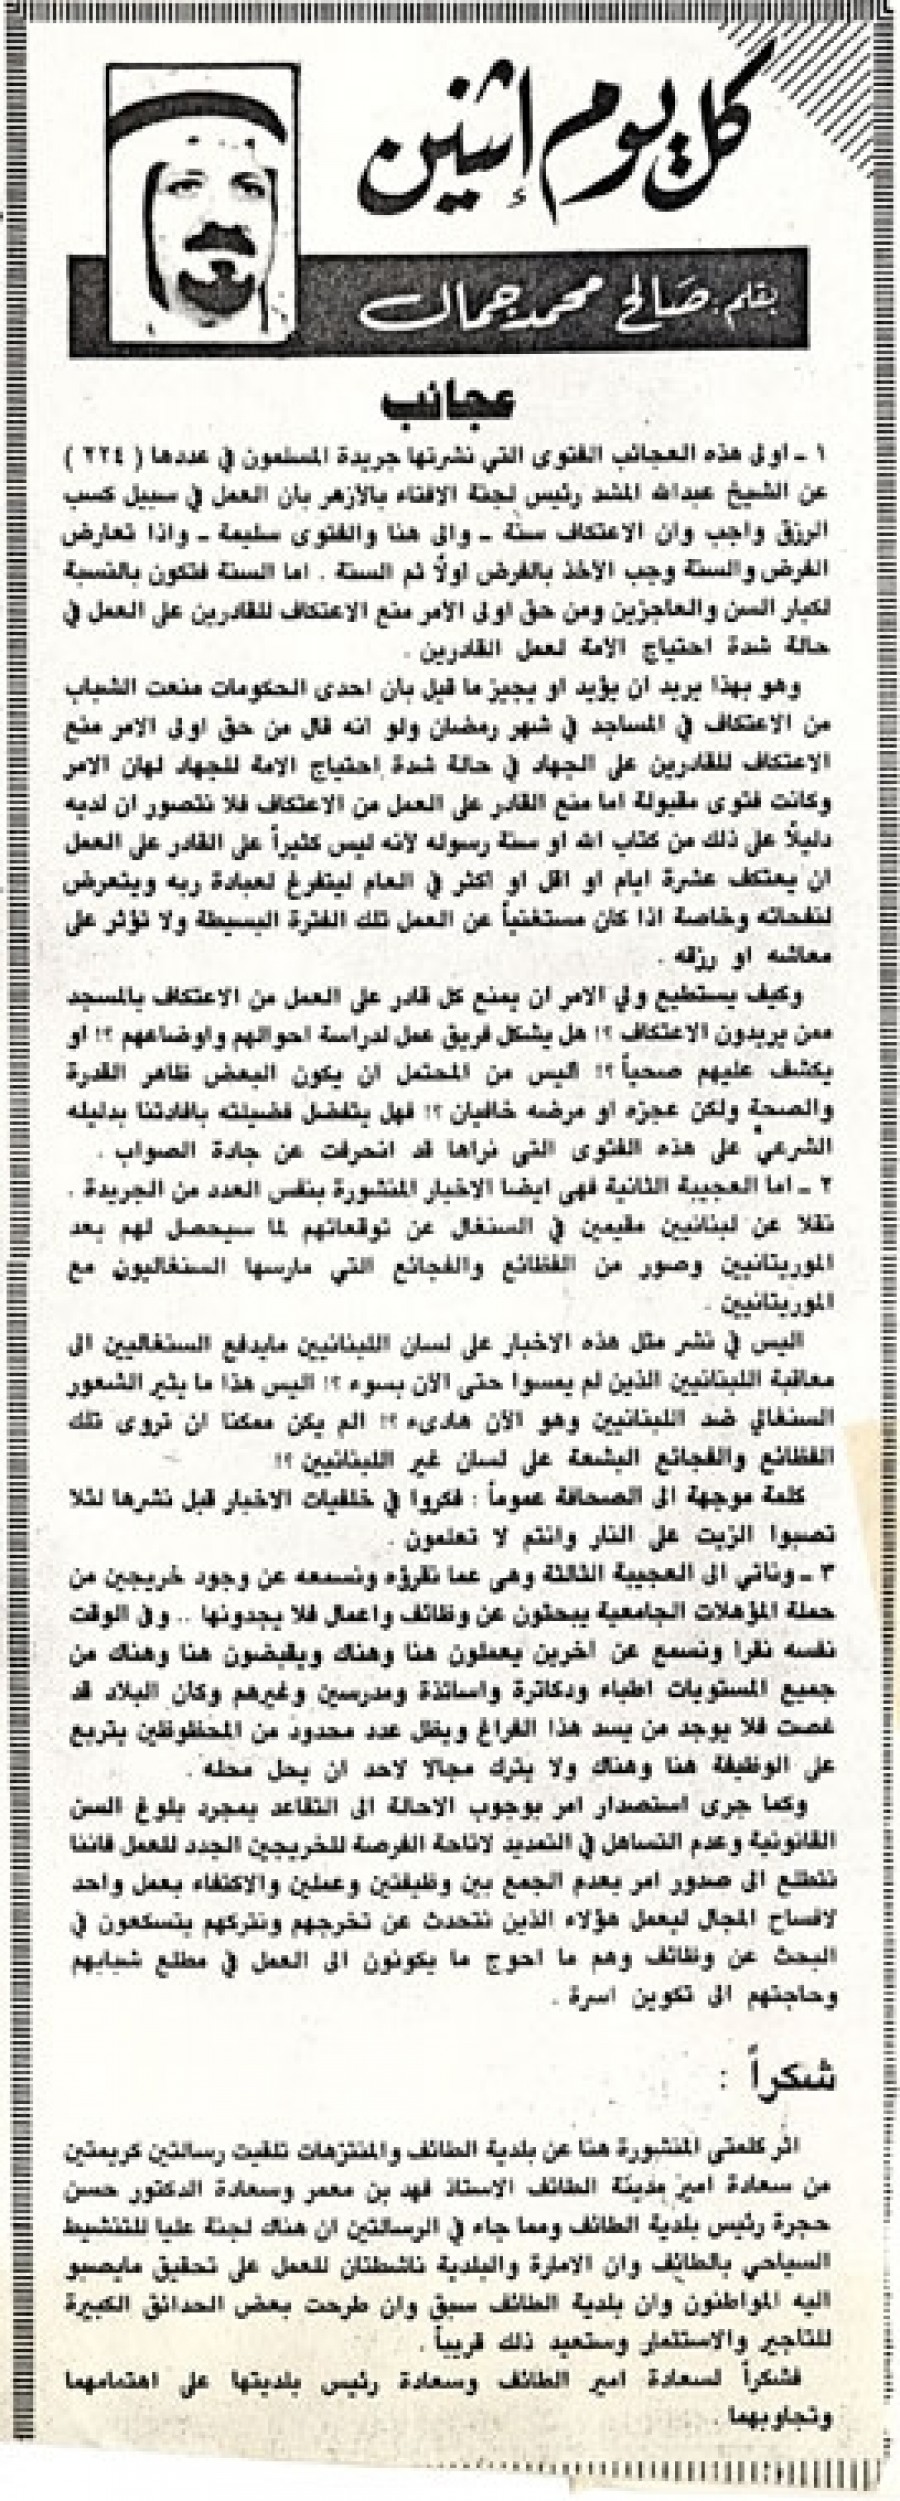 كل يوم إثنين
بقلم: صالح محمد جمال
عجائب
١ - اولى هذه العجائب الفتوى التي نشرتها جريدة المسلمون في عددها ( ٢٢٤ )
عن الشيخ عبدالله المشد رئيس لجنة الافتاء بالازهر بان العمل في سبيل كسب
الرزق واجب وان الاعتكاف سنة - والى هنا والفتوى سليمة - واذا تعارض
الفرض والسنة وجب الاخذ بالفرض اولاً ثم السنة . اما السنة فتكون بالنسبة
لكبار السن والعاجزين ومن حق اولى الامر منع الاعتكاف للقادرين على العمل في
حالة شدة احتياج الامة لعمل القادرين .
وهو بهذا يريد ان يؤيد او يجيز ما قيل بان احدى الحكومات منعت الشباب
من الاعتكاف في المساجد في شهر رمضان ولو انه قال من حق اولى الامر منع
الاعتكاف للقادرين على الجهاد في حالة شدة احتياج الامة للجهاد لهان الامر
وكانت فتوى مقبولة اما منع القادر على العمل من الاعتكاف فلا نتصور ان لديه
دليلاً على ذلك من كتاب الله او سنة رسوله لانه ليس كثيراً على القادر على العمل
ان يعتكف عشرة ايام او اقل او اكثر في العام ليتفرغ لعبادة ربه ويتعرض
لنفحاته وخاصة اذا كان مستغنياً عن العمل تلك الفترة البسيطة ولا تؤثر على
معاشه او رزقه .
وكيف يستطيع ولي الامر ان يمنع كل قادر على العمل من الاعتكاف بالمسجد
ممن يريدون الاعتكاف ؟! هل يشكل فريق عمل لدراسة احوالهم واوضاعهم ؟! او
يكشف عليهم صحياً ؟! اليس من المحتمل ان يكون البعض ظاهر القدرة
والصحة ولكن عجزه او مرضه خافيان ؟! فهل يتفضل فضيلته بافادتنا بدليله
الشرعي على هذه الفتوى التي نراها قد انحرفت عن جادة الصواب .
٢ - اما العجيبة الثانية فهى ايضا الاخبار المنشورة بنفس العدد من الجريدة .
نقلا عن لبنانيين مقيمين في السنغال عن توقعاتهم لما سيحصل لهم بعد
الموريتانيين وصور من الفظائع والفجائع التي مارسها السنغاليون مع
الموريتانيين .
اليس في نشر مثل هذه الاخبار على لسان اللبنانيين مايدفع السنغاليين الى
معاقبة اللبنانيين الذين لم يمسوا حتى الآن بسوء ؟! اليس هذا ما يثير الشعور
السنغالي ضد اللبنانيين وهو الآن هادىء ؟! الم يكن ممكنا ان تروى تلك
الفظائع والفجائع البشعة على لسان غير اللبنانيين ؟!
كلمة موجهة الى الصحافة عموماً : فكروا في خلفيات الاخبار قبل نشرها لئلا
تصبوا الزيت على النار وانتم لا تعلمون .
٣ - وناتي الى العجيبة الثالثة وهى عما نقرؤه ونسمعه عن وجود خريجين من
حملة المؤهلات الجامعية يبحثون عن وظائف واعمال فلا يجدونها .. وفى الوقت
نفسه نقرا ونسمع عن اخرين يعملون هنا وهناك ويقبضون هنا وهناك من
جميع المستويات اطباء ودكاترة واساتذة ومدرسين وغيرهم وكان البلاد قد
غصت فلا يوجد من يسد هذا الفراغ ويظل عدد محدود من المحظوظين يتربع
على الوظيفة هنا وهناك ولا يترك مجالا لاحد ان يحل محله .
وكما جرى استصدار امر بوجوب الاحالة الى التقاعد بمجرد بلوغ السن
القانونية وعدم التساهل في التمديد لاتاحة الفرصة للخريجين الجدد للعمل فاننا
نتطلع الى صدور امر بعدم الجمع بين وظيفتين وعملين والاكتفاء بعمل واحد
لافساح المجال ليعمل هؤلاء الذين نتحدث عن تخرجهم ونتركهم يتسكعون في
البحث عن وظائف وهم ما احوج ما يكونون الى العمل في مطلع شبابهم
وحاجتهم الى تكوين اسرة .
شكراً :
اثر كلمتى المنشورة هنا عن بلدية الطائف والمنتزهات تلقيت رسالتين كريمتين
من سعادة امير مدينة الطائف الاستاذ فهد بن معمر وسعادة الدكتور حسن
حجرة رئيس بلدية الطائف ومما جاء في الرسالتين ان هناك لجنة عليا للتنشيط
السياحي بالطائف وان الامارة والبلدية ناشطتان للعمل على تحقيق مايصبو
اليه المواطنون وان بلدية الطائف سبق وان طرحت بعض الحدائق الكبيرة
للتاجير والاستثمار وستعيد ذلك قريباً .
فشكراً لسعادة امير الطائف وسعادة رئيس بلديتها على اهتمامهما
وتجاوبهما .